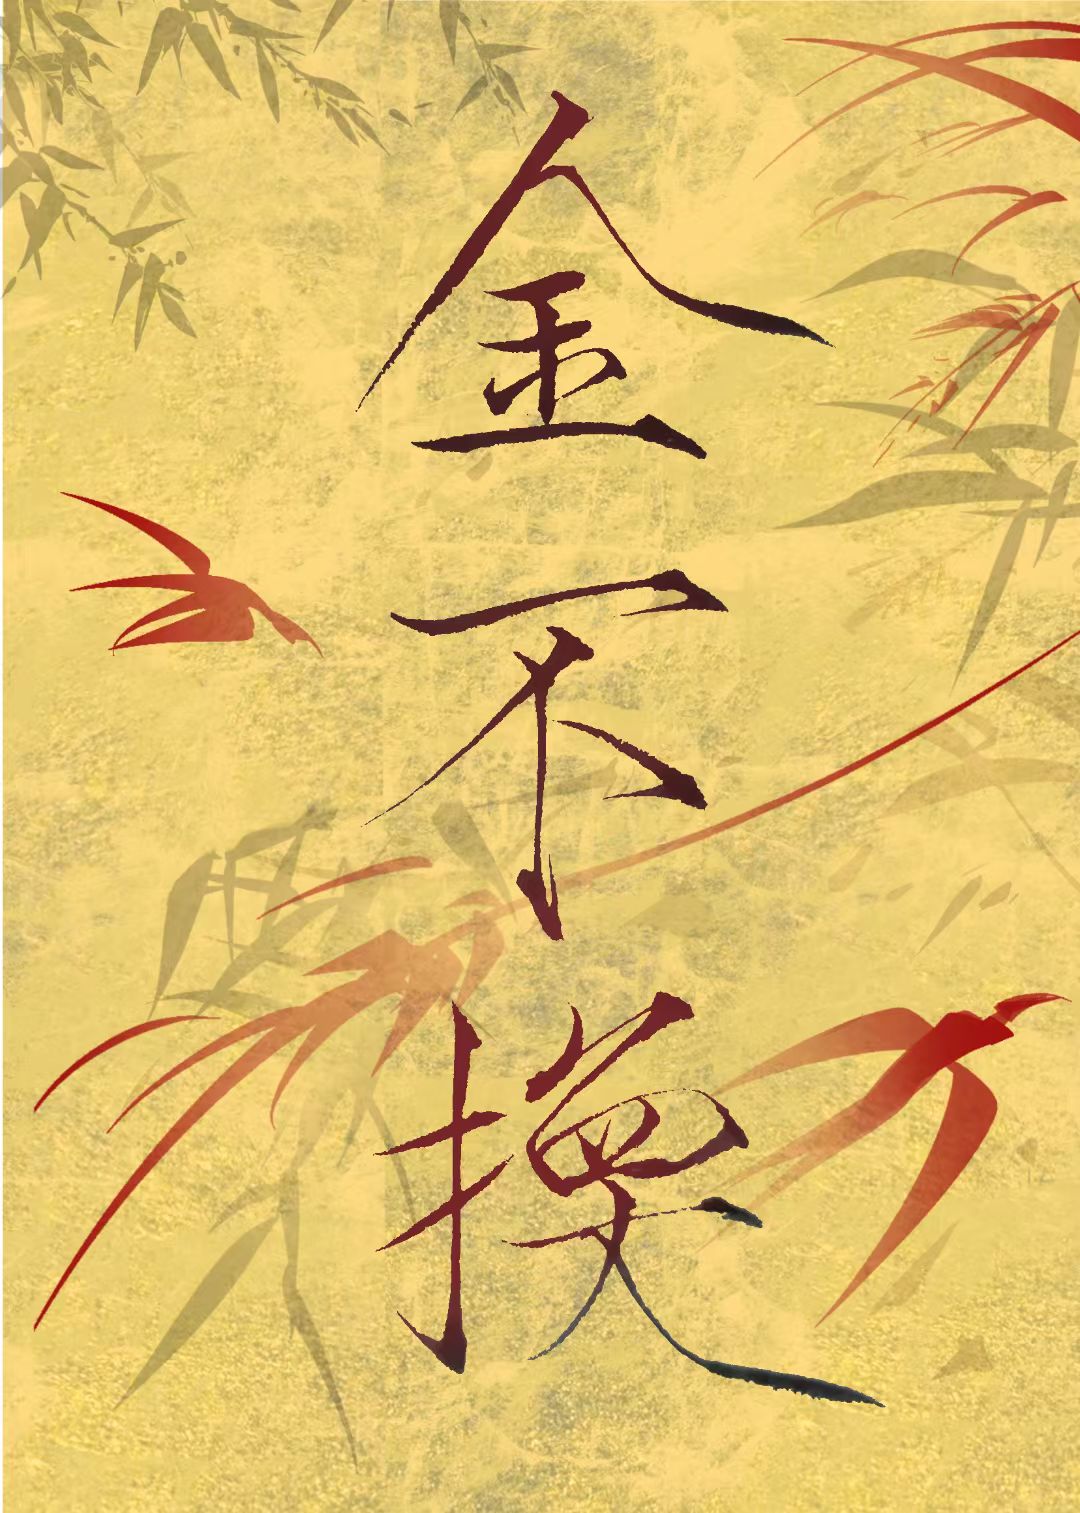 金不换